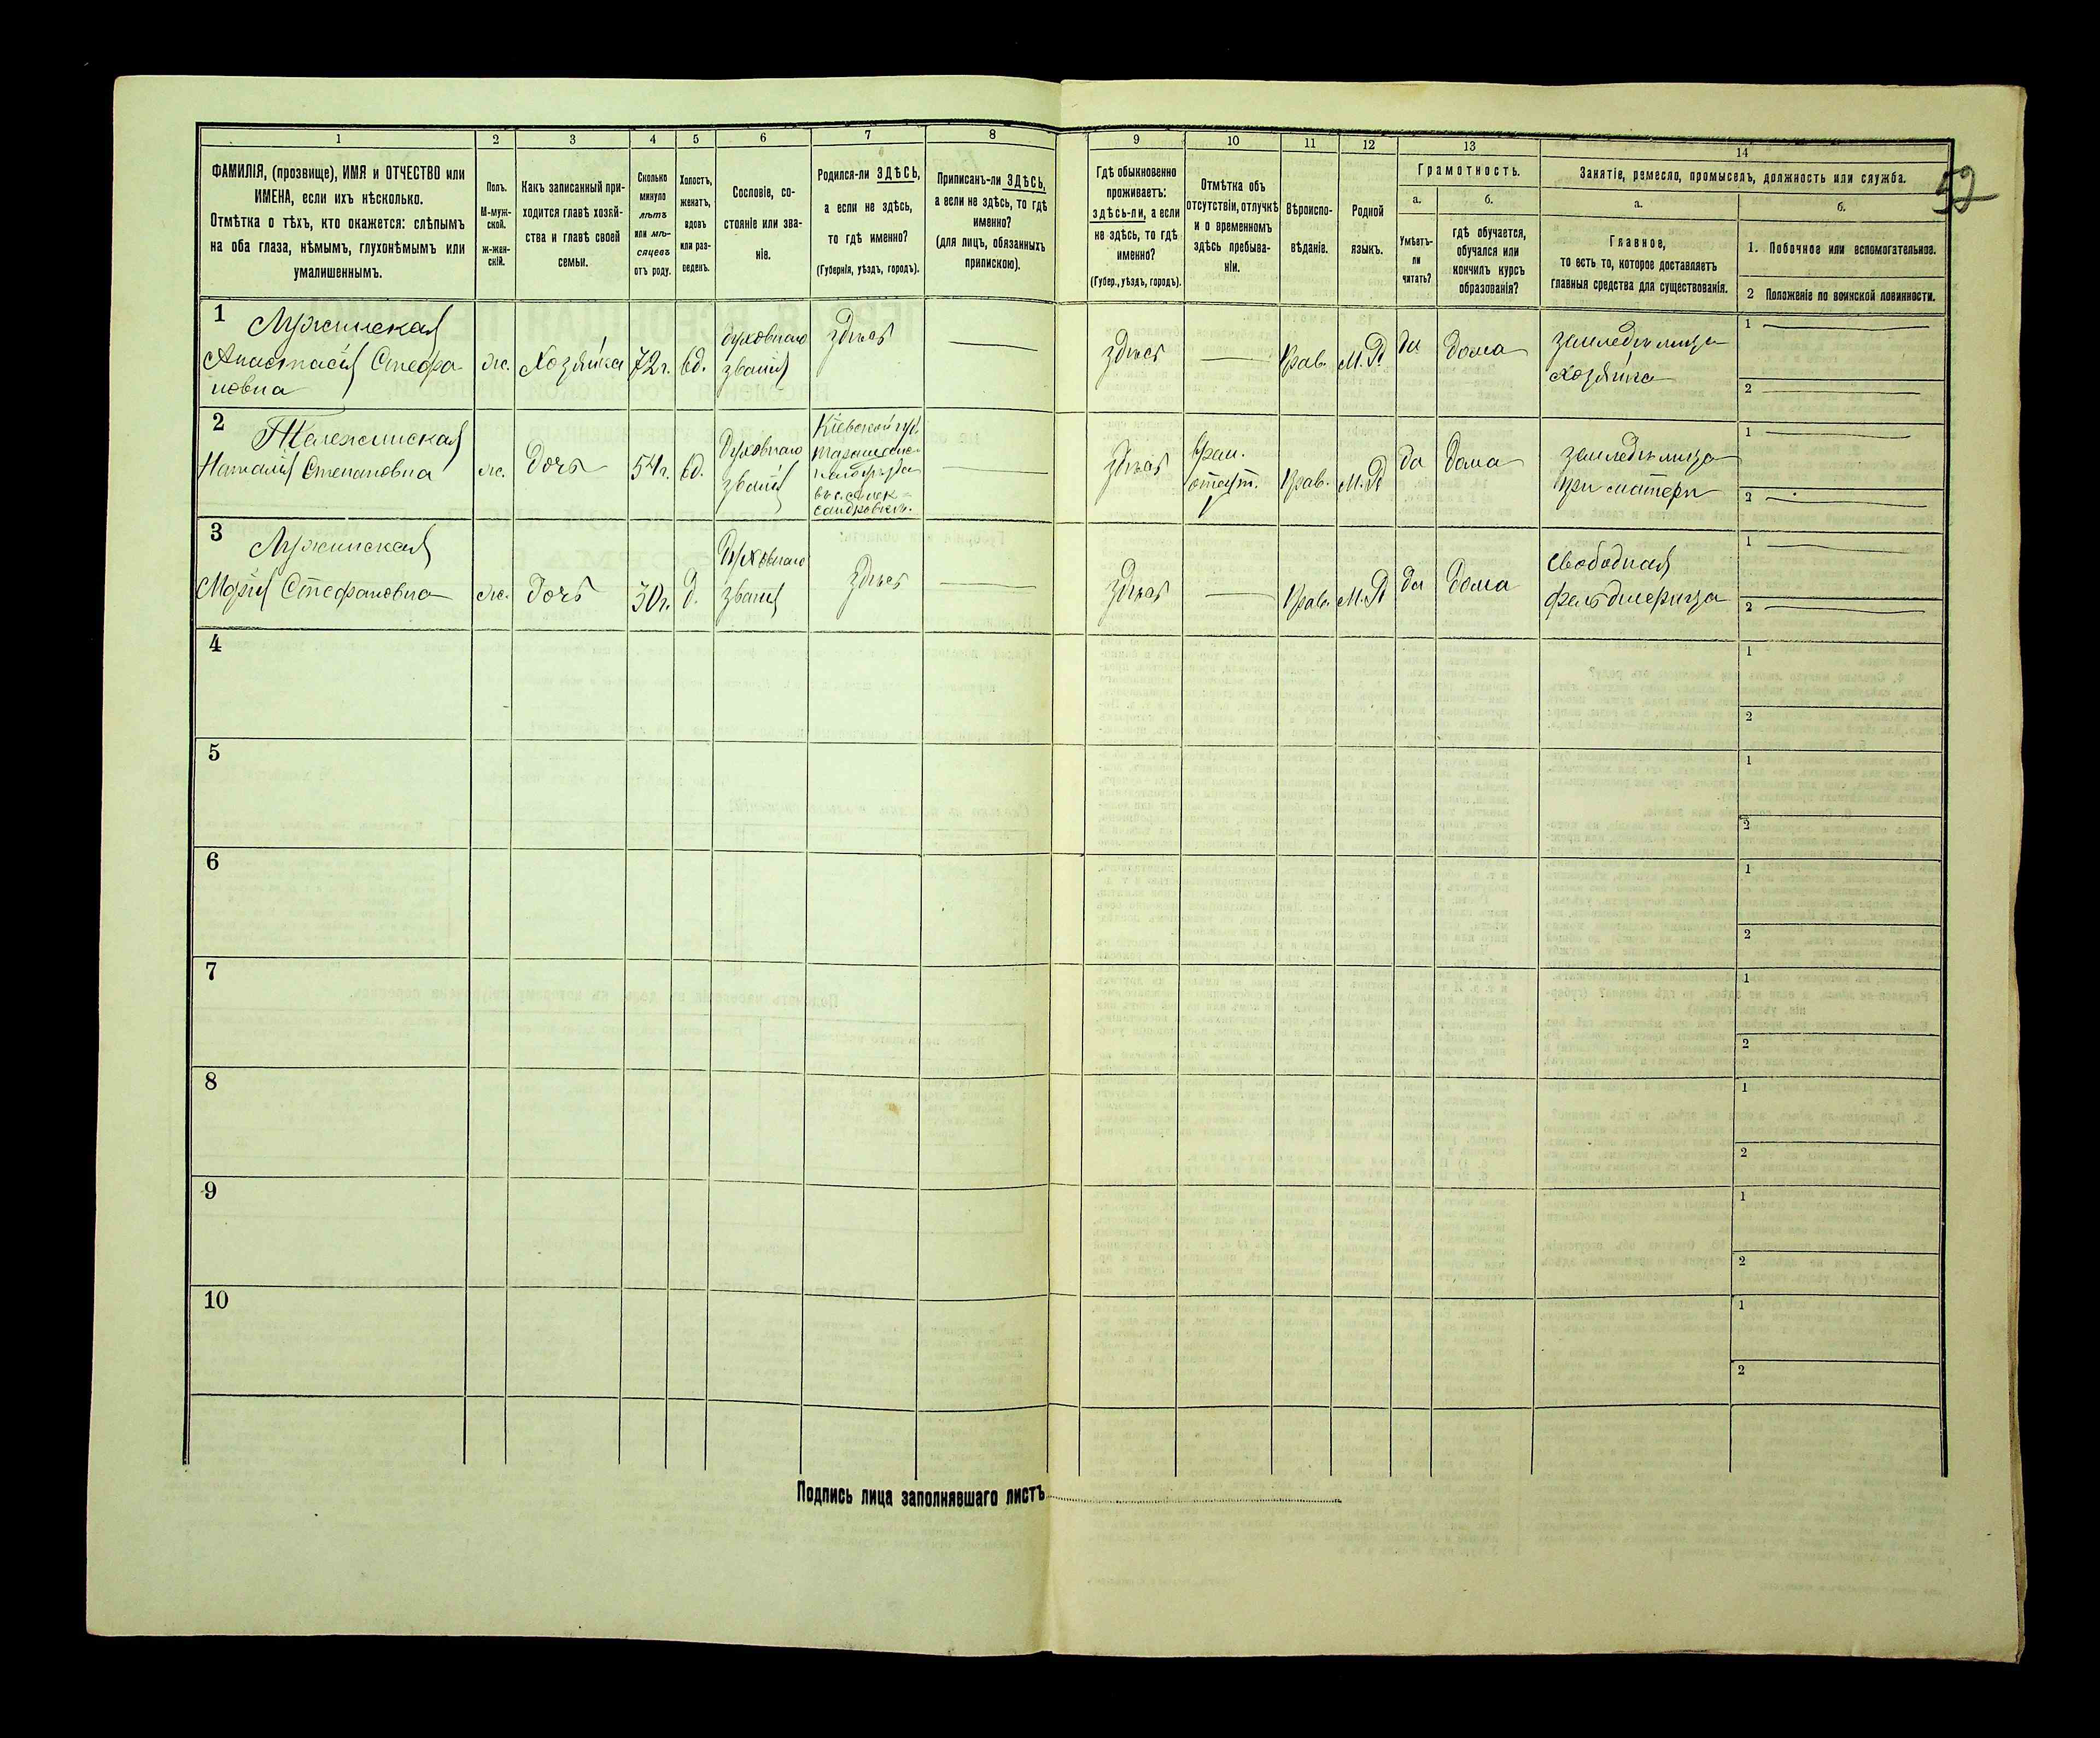 52
1 2 3 4 5 6 7 8 9 10 11 12 13 14
ФАМИЛІЯ, (прозвище), ИМЯ и ОТЧЕСТВО или
ИМЕНА, если ихъ нѣсколько.
Отмѣтка о тѣхъ, кто окажется: слѣпымъ
на оба глаза, нѣмымъ, глухонѣмымъ или
умалишеннымъ.
Полъ.
М-муж-
ской.
ж-жен-
скій.
Какъ записанный при-
ходится главѣ хозяй-
ства и главѣ своей
семьи.
Сколько
минуло
лѣтъ
или мѣ-
сяцевъ
отъ роду.
Холостъ,
женатъ,
вдовъ
или раз-
веденъ.
Сословіе, со-
стояніе или зва-
ніе.
Родился-ли ЗДѢСЬ,
а если не здѣсь,
то гдѣ именно?
(Губернія, уѣздъ, городъ).
Приписанъ-ли ЗДѢСЬ,
а если не здѣсь, то гдѣ
именно?
(для лицъ, обязанныхъ
припискою).
Гдѣ обыкновенно
проживаетъ:
здѣсь-ли, а если
не здѣсь, то гдѣ
именно?
(Губер., уѣздъ, городъ).
Отмѣтка объ
отсутствіи, отлучкѣ
и о временномъ
здѣсь пребыва-
ніи.
Вѣроиспо-
вѣданіе.
Родной
языкъ.
Грамотность.
а.
Умѣетъ-
ли
читать?
б.
гдѣ обучается,
обучался или
кончилъ курсъ
образованія?
Занятіе, ремесло, промыселъ, должность или служба.
а.
Главное,
то есть то, которое доставляетъ
главныя средства для существованія.
б.
1. Побочное или вспомогательное.
2 Положеніе по воинской повинности.
1
Лужинская
Анастасія Стефа
новна
ж.
Хозяйка
72 г.
вд.
духовнаго
званія
здѣсь
здѣсь
Прав.
М. Р
да
дома
земледѣлица
хозяйка
1
2
2
Наталія Степановна
ж.
дочь
54 г.
вд.
духовнаго
званія
Кіевской губ.
здѣсь
Прав.
М. Р
да
дома
земледѣлица
при матери
1
2
3
Лужинская
Марія Стефановна
ж.
дочь
30 г.
д.
духовнаго
званія
здѣсь
здѣсь
Прав.
М. Р
да
дома
Свободная
фельдшерица
1
2
4
1
2
5
1
2
6
1
2
7
1
2
8
1
2
9
1
2
10
1
2
Подпись лица заполнявшаго листъ